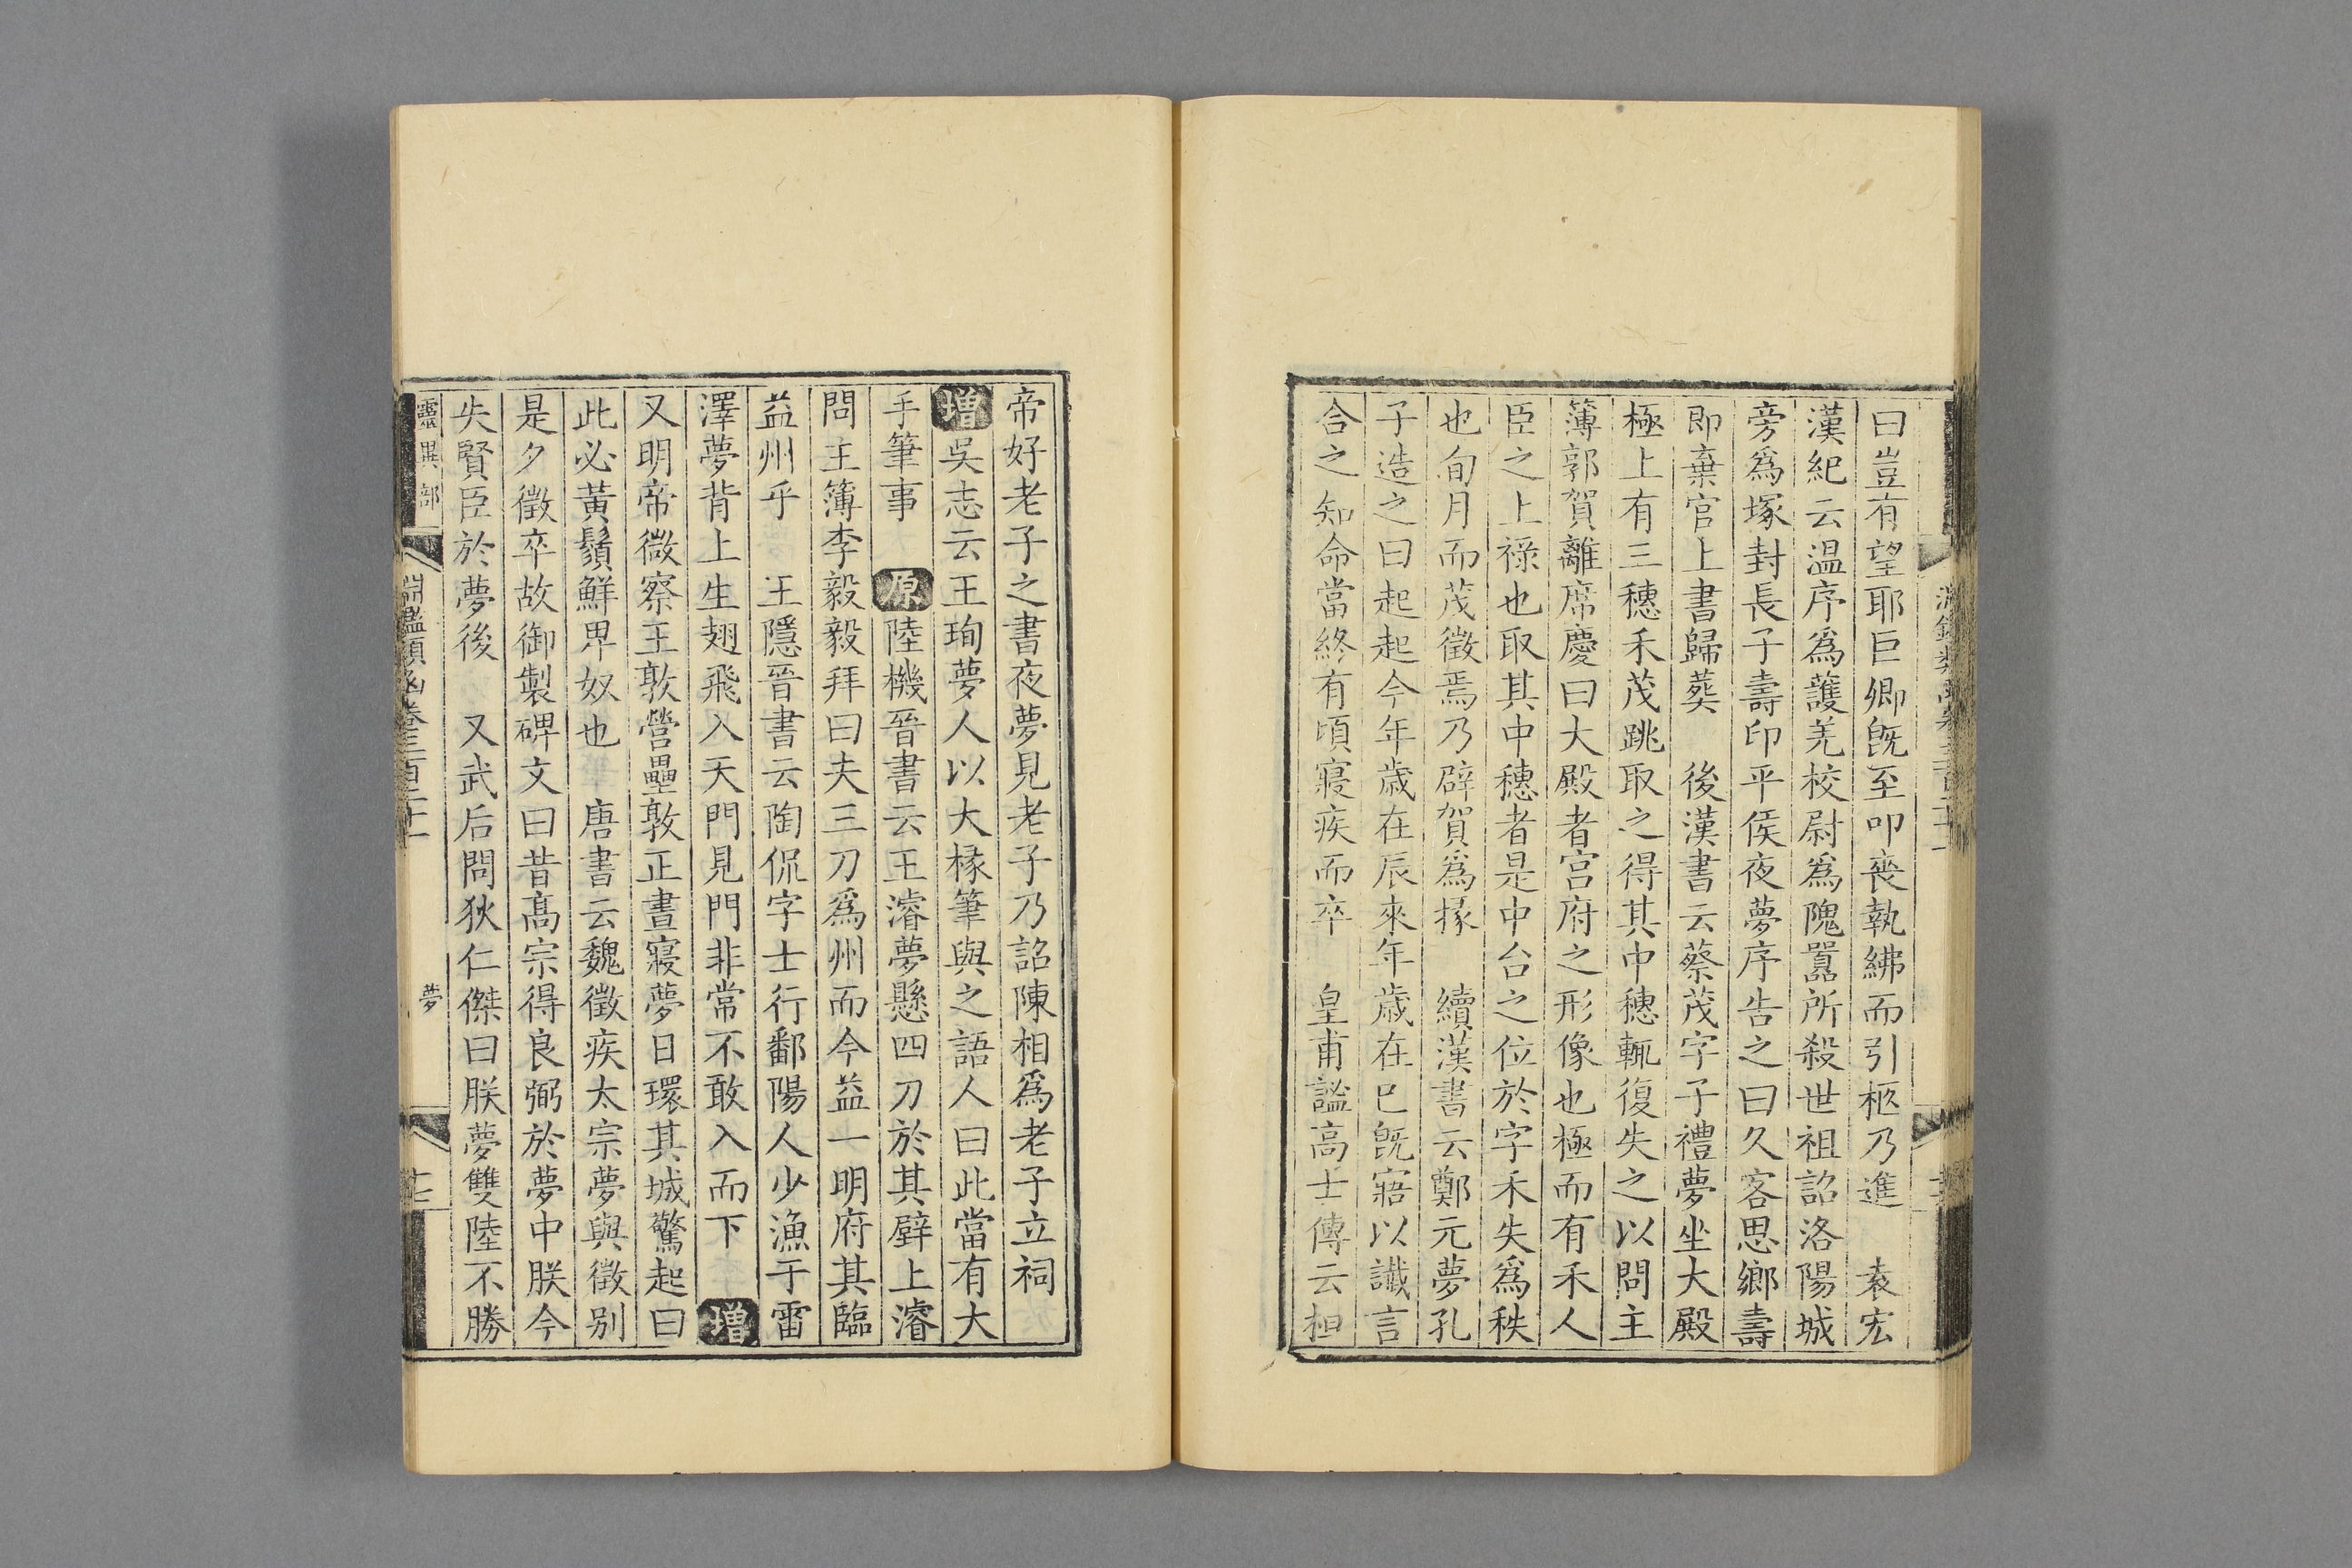 曰豈有望耶巨卿旣至叩喪執紼而引柩乃進　袁宏
漢紀云温序爲護羌校尉爲隗囂所殺世祖詔洛陽城
旁爲塚封長子壽印平侯夜夢序告之曰久客思鄉壽
即棄官上書歸葬　後漢書云蔡茂字子禮夢坐大殿
極上有三穗禾茂跳取之得其中穗輒復失之以問主
簿郭賀離席慶曰大殿者宫府之形像也極而有禾人
臣之上禄也取其中穗者是中台之位於字禾失爲秩
也旬月而茂徵焉乃辟賀爲掾　續漢書云鄭元夢孔
子造之曰起起今年歲在辰來年歲在巳旣寤以讖言
合之知命當終有頃寢疾而卒　皇甫謐高士傳云桓
帝好老子之書夜夢見老子乃詔陳相爲老子立祠
增吳志云王珣夢人以大椽筆與之語人曰此當有大
手筆事　原陸機晉書云王濬夢懸四刀於其壁上濬
問主簿李毅毅拜曰夫三刀爲州而今益一明府其臨
益州乎　王隱晉書云陶侃字士行鄱陽人少漁于雷
澤夢背上生翅飛入天門見門非常不敢入而下　增
又明帝微察王敦營壘敦正晝寢夢日環其城驚起曰
此必黃鬚鮮卑奴也　唐書云魏徵疾太宗夢與徵別
是夕徵卒故御製碑文曰昔髙宗得良弼於夢中朕今
失賢臣於夢後　又武后問狄仁傑曰朕夢雙陸不勝
靈異部
淵鑑類函卷三百二十一
夢